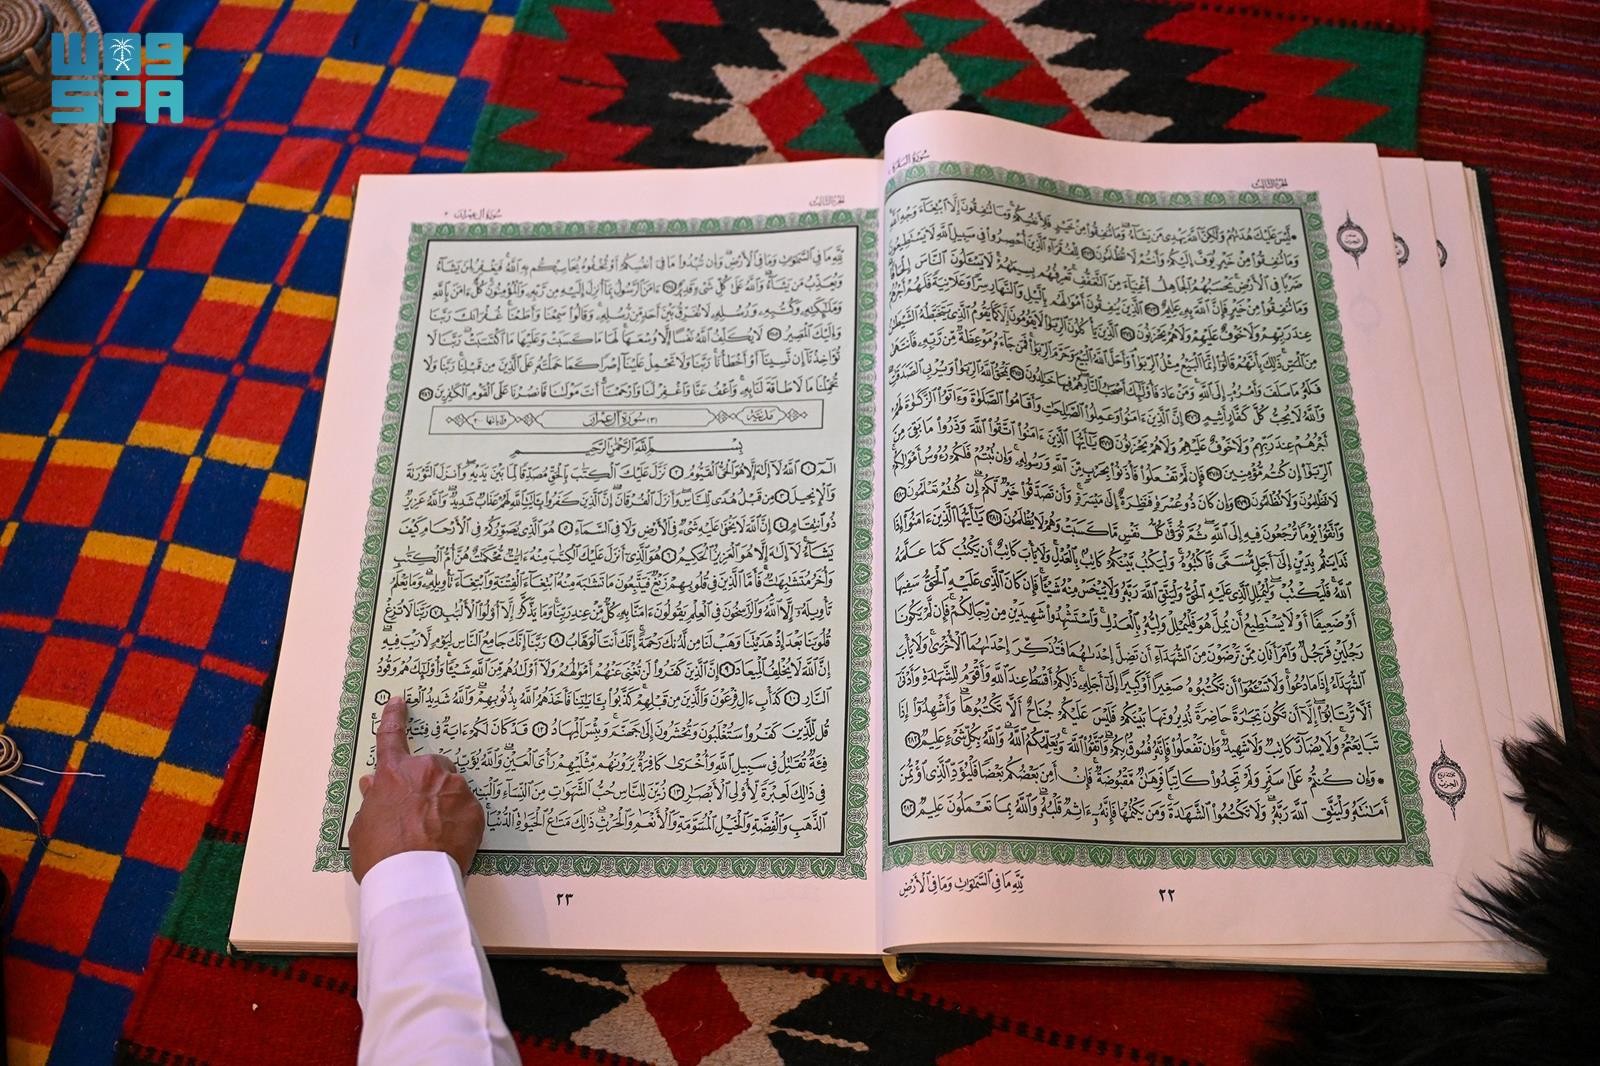 واس
SPA
سورة البقرة
الجزء الثالث
• لَّيْسَ عَلَيْكَ هُدَىٰهُمْ وَلَٰكِنَّ ٱللَّهَ يَهْدِى مَن يَشَآءُ وَمَا تُنفِقُوا۟ مِنْ خَيْرٍ فَلِأَنفُسِكُمْ وَمَا تُنفِقُونَ إِلَّا ٱبْتِغَآءَ وَجْهِ ٱللَّهِ
وَمَا تُنفِقُوا۟ مِنْ خَيْرٍ يُوَفَّ إِلَيْكُمْ وَأَنتُمْ لَا تُظْلَمُونَ ٢٧٢ لِلْفُقَرَآءِ ٱلَّذِينَ أُحْصِرُوا۟ فِى سَبِيلِ ٱللَّهِ لَا يَسْتَطِيعُونَ
ضَرْبًا فِى ٱلْأَرْضِ يَحْسَبُهُمُ ٱلْجَاهِلُ أَغْنِيَآءَ مِنَ ٱلتَّعَفُّفِ تَعْرِفُهُم بِسِيمَٰهُمْ لَا يَسْـَٔلُونَ ٱلنَّاسَ إِلْحَافًا
وَمَا تُنفِقُوا۟ مِنْ خَيْرٍ فَإِنَّ ٱللَّهَ بِهِۦ عَلِيمٌ ٢٧٣ ٱلَّذِينَ يُنفِقُونَ أَمْوَٰلَهُم بِٱلَّيْلِ وَٱلنَّهَارِ سِرًّا وَعَلَانِيَةً فَلَهُمْ أَجْرُهُمْ
عِندَ رَبِّهِمْ وَلَا خَوْفٌ عَلَيْهِمْ وَلَا هُمْ يَحْزَنُونَ ٢٧٤ ٱلَّذِينَ يَأْكُلُونَ ٱلرِّبَوٰا۟ لَا يَقُومُونَ إِلَّا كَمَا يَقُومُ ٱلَّذِى يَتَخَبَّطُهُ ٱلشَّيْطَٰنُ
مِنَ ٱلْمَسِّ ذَٰلِكَ بِأَنَّهُمْ قَالُوٓا۟ إِنَّمَا ٱلْبَيْعُ مِثْلُ ٱلرِّبَوٰا۟ وَأَحَلَّ ٱللَّهُ ٱلْبَيْعَ وَحَرَّمَ ٱلرِّبَوٰا۟ فَمَن جَآءَهُۥ مَوْعِظَةٌ مِّن رَّبِّهِۦ فَٱنتَهَىٰ
فَلَهُۥ مَا سَلَفَ وَأَمْرُهُۥٓ إِلَى ٱللَّهِ وَمَنْ عَادَ فَأُو۟لَٰٓئِكَ أَصْحَٰبُ ٱلنَّارِ هُمْ فِيهَا خَٰلِدُونَ ٢٧٥ يَمْحَقُ ٱللَّهُ ٱلرِّبَوٰا۟ وَيُرْبِى ٱلصَّدَقَٰتِ
وَٱللَّهُ لَا يُحِبُّ كُلَّ كَفَّارٍ أَثِيمٍ ٢٧٦ إِنَّ ٱلَّذِينَ ءَامَنُوا۟ وَعَمِلُوا۟ ٱلصَّٰلِحَٰتِ وَأَقَامُوا۟ ٱلصَّلَوٰةَ وَءَاتَوُا۟ ٱلزَّكَوٰةَ لَهُمْ
أَجْرُهُمْ عِندَ رَبِّهِمْ وَلَا خَوْفٌ عَلَيْهِمْ وَلَا هُمْ يَحْزَنُونَ ٢٧٧ يَٰٓأَيُّهَا ٱلَّذِينَ ءَامَنُوا۟ ٱتَّقُوا۟ ٱللَّهَ وَذَرُوا۟ مَا بَقِىَ مِنَ
ٱلرِّبَوٰٓا۟ إِن كُنتُم مُّؤْمِنِينَ ٢٧٨ فَإِن لَّمْ تَفْعَلُوا۟ فَأْذَنُوا۟ بِحَرْبٍ مِّنَ ٱللَّهِ وَرَسُولِهِۦ وَإِن تُبْتُمْ فَلَكُمْ رُءُوسُ أَمْوَٰلِكُمْ
لَا تَظْلِمُونَ وَلَا تُظْلَمُونَ ٢٧٩ وَإِن كَانَ ذُو عُسْرَةٍ فَنَظِرَةٌ إِلَىٰ مَيْسَرَةٍ وَأَن تَصَدَّقُوا۟ خَيْرٌ لَّكُمْ إِن كُنتُمْ تَعْلَمُونَ ٢٨٠
وَٱتَّقُوا۟ يَوْمًا تُرْجَعُونَ فِيهِ إِلَى ٱللَّهِ ثُمَّ تُوَفَّىٰ كُلُّ نَفْسٍ مَّا كَسَبَتْ وَهُمْ لَا يُظْلَمُونَ ٢٨١ يَٰٓأَيُّهَا ٱلَّذِينَ ءَامَنُوٓا۟ إِذَا
تَدَايَنتُم بِدَيْنٍ إِلَىٰٓ أَجَلٍ مُّسَمًّى فَٱكْتُبُوهُ وَلْيَكْتُب بَّيْنَكُمْ كَاتِبٌۢ بِٱلْعَدْلِ وَلَا يَأْبَ كَاتِبٌ أَن يَكْتُبَ كَمَا عَلَّمَهُ
ٱللَّهُ فَلْيَكْتُبْ وَلْيُمْلِلِ ٱلَّذِى عَلَيْهِ ٱلْحَقُّ وَلْيَتَّقِ ٱللَّهَ رَبَّهُۥ وَلَا يَبْخَسْ مِنْهُ شَيْـًٔا فَإِن كَانَ ٱلَّذِى عَلَيْهِ ٱلْحَقُّ سَفِيهًا
أَوْ ضَعِيفًا أَوْ لَا يَسْتَطِيعُ أَن يُمِلَّ هُوَ فَلْيُمْلِلْ وَلِيُّهُۥ بِٱلْعَدْلِ وَٱسْتَشْهِدُوا۟ شَهِيدَيْنِ مِن رِّجَالِكُمْ فَإِن لَّمْ يَكُونَا
رَجُلَيْنِ فَرَجُلٌ وَٱمْرَأَتَانِ مِمَّن تَرْضَوْنَ مِنَ ٱلشُّهَدَآءِ أَن تَضِلَّ إِحْدَىٰهُمَا فَتُذَكِّرَ إِحْدَىٰهُمَا ٱلْأُخْرَىٰ وَلَا يَأْبَ
ٱلشُّهَدَآءُ إِذَا مَا دُعُوا۟ وَلَا تَسْـَٔمُوٓا۟ أَن تَكْتُبُوهُ صَغِيرًا أَوْ كَبِيرًا إِلَىٰٓ أَجَلِهِۦ ذَٰلِكُمْ أَقْسَطُ عِندَ ٱللَّهِ وَأَقْوَمُ لِلشَّهَٰدَةِ وَأَدْنَىٰٓ
أَلَّا تَرْتَابُوٓا۟ إِلَّآ أَن تَكُونَ تِجَٰرَةً حَاضِرَةً تُدِيرُونَهَا بَيْنَكُمْ فَلَيْسَ عَلَيْكُمْ جُنَاحٌ أَلَّا تَكْتُبُوهَا وَأَشْهِدُوٓا۟ إِذَا
تَبَايَعْتُمْ وَلَا يُضَآرَّ كَاتِبٌ وَلَا شَهِيدٌ وَإِن تَفْعَلُوا۟ فَإِنَّهُۥ فُسُوقٌۢ بِكُمْ وَٱتَّقُوا۟ ٱللَّهَ وَيُعَلِّمُكُمُ ٱللَّهُ وَٱللَّهُ بِكُلِّ شَىْءٍ عَلِيمٌ ٢٨٢
• وَإِن كُنتُمْ عَلَىٰ سَفَرٍ وَلَمْ تَجِدُوا۟ كَاتِبًا فَرِهَٰنٌ مَّقْبُوضَةٌ فَإِنْ أَمِنَ بَعْضُكُم بَعْضًا فَلْيُؤَدِّ ٱلَّذِى ٱؤْتُمِنَ
أَمَٰنَتَهُۥ وَلْيَتَّقِ ٱللَّهَ رَبَّهُۥ وَلَا تَكْتُمُوا۟ ٱلشَّهَٰدَةَ وَمَن يَكْتُمْهَا فَإِنَّهُۥٓ ءَاثِمٌ قَلْبُهُۥ وَٱللَّهُ بِمَا تَعْمَلُونَ عَلِيمٌ ٢٨٣
لِّلَّهِ مَا فِى ٱلسَّمَٰوَٰتِ وَمَا فِى ٱلْأَرْضِ
٢٢
الحزب
الحزب
الجزء الثالث
سورة آل عمران
لِّلَّهِ مَا فِى ٱلسَّمَٰوَٰتِ وَمَا فِى ٱلْأَرْضِ وَإِن تُبْدُوا۟ مَا فِىٓ أَنفُسِكُمْ أَوْ تُخْفُوهُ يُحَاسِبْكُم بِهِ ٱللَّهُ فَيَغْفِرُ لِمَن يَشَآءُ
وَيُعَذِّبُ مَن يَشَآءُ وَٱللَّهُ عَلَىٰ كُلِّ شَىْءٍ قَدِيرٌ ٢٨٤ ءَامَنَ ٱلرَّسُولُ بِمَآ أُنزِلَ إِلَيْهِ مِن رَّبِّهِۦ وَٱلْمُؤْمِنُونَ كُلٌّ ءَامَنَ بِٱللَّهِ
وَمَلَٰٓئِكَتِهِۦ وَكُتُبِهِۦ وَرُسُلِهِۦ لَا نُفَرِّقُ بَيْنَ أَحَدٍ مِّن رُّسُلِهِۦ وَقَالُوا۟ سَمِعْنَا وَأَطَعْنَا غُفْرَانَكَ رَبَّنَا
وَإِلَيْكَ ٱلْمَصِيرُ ٢٨٥ لَا يُكَلِّفُ ٱللَّهُ نَفْسًا إِلَّا وُسْعَهَا لَهَا مَا كَسَبَتْ وَعَلَيْهَا مَا ٱكْتَسَبَتْ رَبَّنَا لَا
تُؤَاخِذْنَآ إِن نَّسِينَآ أَوْ أَخْطَأْنَا رَبَّنَا وَلَا تَحْمِلْ عَلَيْنَآ إِصْرًا كَمَا حَمَلْتَهُۥ عَلَى ٱلَّذِينَ مِن قَبْلِنَا رَبَّنَا وَلَا
تُحَمِّلْنَا مَا لَا طَاقَةَ لَنَا بِهِۦ وَٱعْفُ عَنَّا وَٱغْفِرْ لَنَا وَٱرْحَمْنَآ أَنتَ مَوْلَىٰنَا فَٱنصُرْنَا عَلَى ٱلْقَوْمِ ٱلْكَٰفِرِينَ ٢٨٦
مدنية (٣) سورة آل عمران وآياتها ٢٠٠
بِسْمِ ٱللَّهِ ٱلرَّحْمَٰنِ ٱلرَّحِيمِ
الٓمٓ ١ ٱللَّهُ لَآ إِلَٰهَ إِلَّا هُوَ ٱلْحَىُّ ٱلْقَيُّومُ ٢ نَزَّلَ عَلَيْكَ ٱلْكِتَٰبَ بِٱلْحَقِّ مُصَدِّقًا لِّمَا بَيْنَ يَدَيْهِ وَأَنزَلَ ٱلتَّوْرَىٰةَ
وَٱلْإِنجِيلَ ٣ مِن قَبْلُ هُدًى لِّلنَّاسِ وَأَنزَلَ ٱلْفُرْقَانَ إِنَّ ٱلَّذِينَ كَفَرُوا۟ بِـَٔايَٰتِ ٱللَّهِ لَهُمْ عَذَابٌ شَدِيدٌ وَٱللَّهُ عَزِيزٌ
ذُو ٱنتِقَامٍ ٤ إِنَّ ٱللَّهَ لَا يَخْفَىٰ عَلَيْهِ شَىْءٌ فِى ٱلْأَرْضِ وَلَا فِى ٱلسَّمَآءِ ٥ هُوَ ٱلَّذِى يُصَوِّرُكُمْ فِى ٱلْأَرْحَامِ كَيْفَ
يَشَآءُ لَآ إِلَٰهَ إِلَّا هُوَ ٱلْعَزِيزُ ٱلْحَكِيمُ ٦ هُوَ ٱلَّذِىٓ أَنزَلَ عَلَيْكَ ٱلْكِتَٰبَ مِنْهُ ءَايَٰتٌ مُّحْكَمَٰتٌ هُنَّ أُمُّ ٱلْكِتَٰبِ
وَأُخَرُ مُتَشَٰبِهَٰتٌ فَأَمَّا ٱلَّذِينَ فِى قُلُوبِهِمْ زَيْغٌ فَيَتَّبِعُونَ مَا تَشَٰبَهَ مِنْهُ ٱبْتِغَآءَ ٱلْفِتْنَةِ وَٱبْتِغَآءَ تَأْوِيلِهِۦ وَمَا يَعْلَمُ
تَأْوِيلَهُۥٓ إِلَّا ٱللَّهُ وَٱلرَّٰسِخُونَ فِى ٱلْعِلْمِ يَقُولُونَ ءَامَنَّا بِهِۦ كُلٌّ مِّنْ عِندِ رَبِّنَا وَمَا يَذَّكَّرُ إِلَّآ أُو۟لُوا۟ ٱلْأَلْبَٰبِ ٧ رَبَّنَا لَا تُزِغْ
قُلُوبَنَا بَعْدَ إِذْ هَدَيْتَنَا وَهَبْ لَنَا مِن لَّدُنكَ رَحْمَةً إِنَّكَ أَنتَ ٱلْوَهَّابُ ٨ رَبَّنَآ إِنَّكَ جَامِعُ ٱلنَّاسِ لِيَوْمٍ لَّا رَيْبَ فِيهِ
إِنَّ ٱللَّهَ لَا يُخْلِفُ ٱلْمِيعَادَ ٩ إِنَّ ٱلَّذِينَ كَفَرُوا۟ لَن تُغْنِىَ عَنْهُمْ أَمْوَٰلُهُمْ وَلَآ أَوْلَٰدُهُم مِّنَ ٱللَّهِ شَيْـًٔا وَأُو۟لَٰٓئِكَ هُمْ وَقُودُ
ٱلنَّارِ ١٠ كَدَأْبِ ءَالِ فِرْعَوْنَ وَٱلَّذِينَ مِن قَبْلِهِمْ كَذَّبُوا۟ بِـَٔايَٰتِنَا فَأَخَذَهُمُ ٱللَّهُ بِذُنُوبِهِمْ وَٱللَّهُ شَدِيدُ ٱلْعِقَابِ ١١
قُل لِّلَّذِينَ كَفَرُوا۟ سَتُغْلَبُونَ وَتُحْشَرُونَ إِلَىٰ جَهَنَّمَ وَبِئْسَ ٱلْمِهَادُ ١٢ قَدْ كَانَ لَكُمْ ءَايَةٌ فِى فِئَتَيْنِ
فِئَةٌ تُقَٰتِلُ فِى سَبِيلِ ٱللَّهِ وَأُخْرَىٰ كَافِرَةٌ يَرَوْنَهُم مِّثْلَيْهِمْ رَأْىَ ٱلْعَيْنِ وَٱللَّهُ يُؤَيِّدُ
فِى ذَٰلِكَ لَعِبْرَةً لِّأُو۟لِى ٱلْأَبْصَٰرِ ١٣ زُيِّنَ لِلنَّاسِ حُبُّ ٱلشَّهَوَٰتِ مِنَ ٱلنِّسَآءِ وَٱلْبَنِينَ
ٱلذَّهَبِ وَٱلْفِضَّةِ وَٱلْخَيْلِ ٱلْمُسَوَّمَةِ وَٱلْأَنْعَٰمِ وَٱلْحَرْثِ ذَٰلِكَ مَتَٰعُ ٱلْحَيَوٰةِ ٱلدُّنْيَا
٢٣